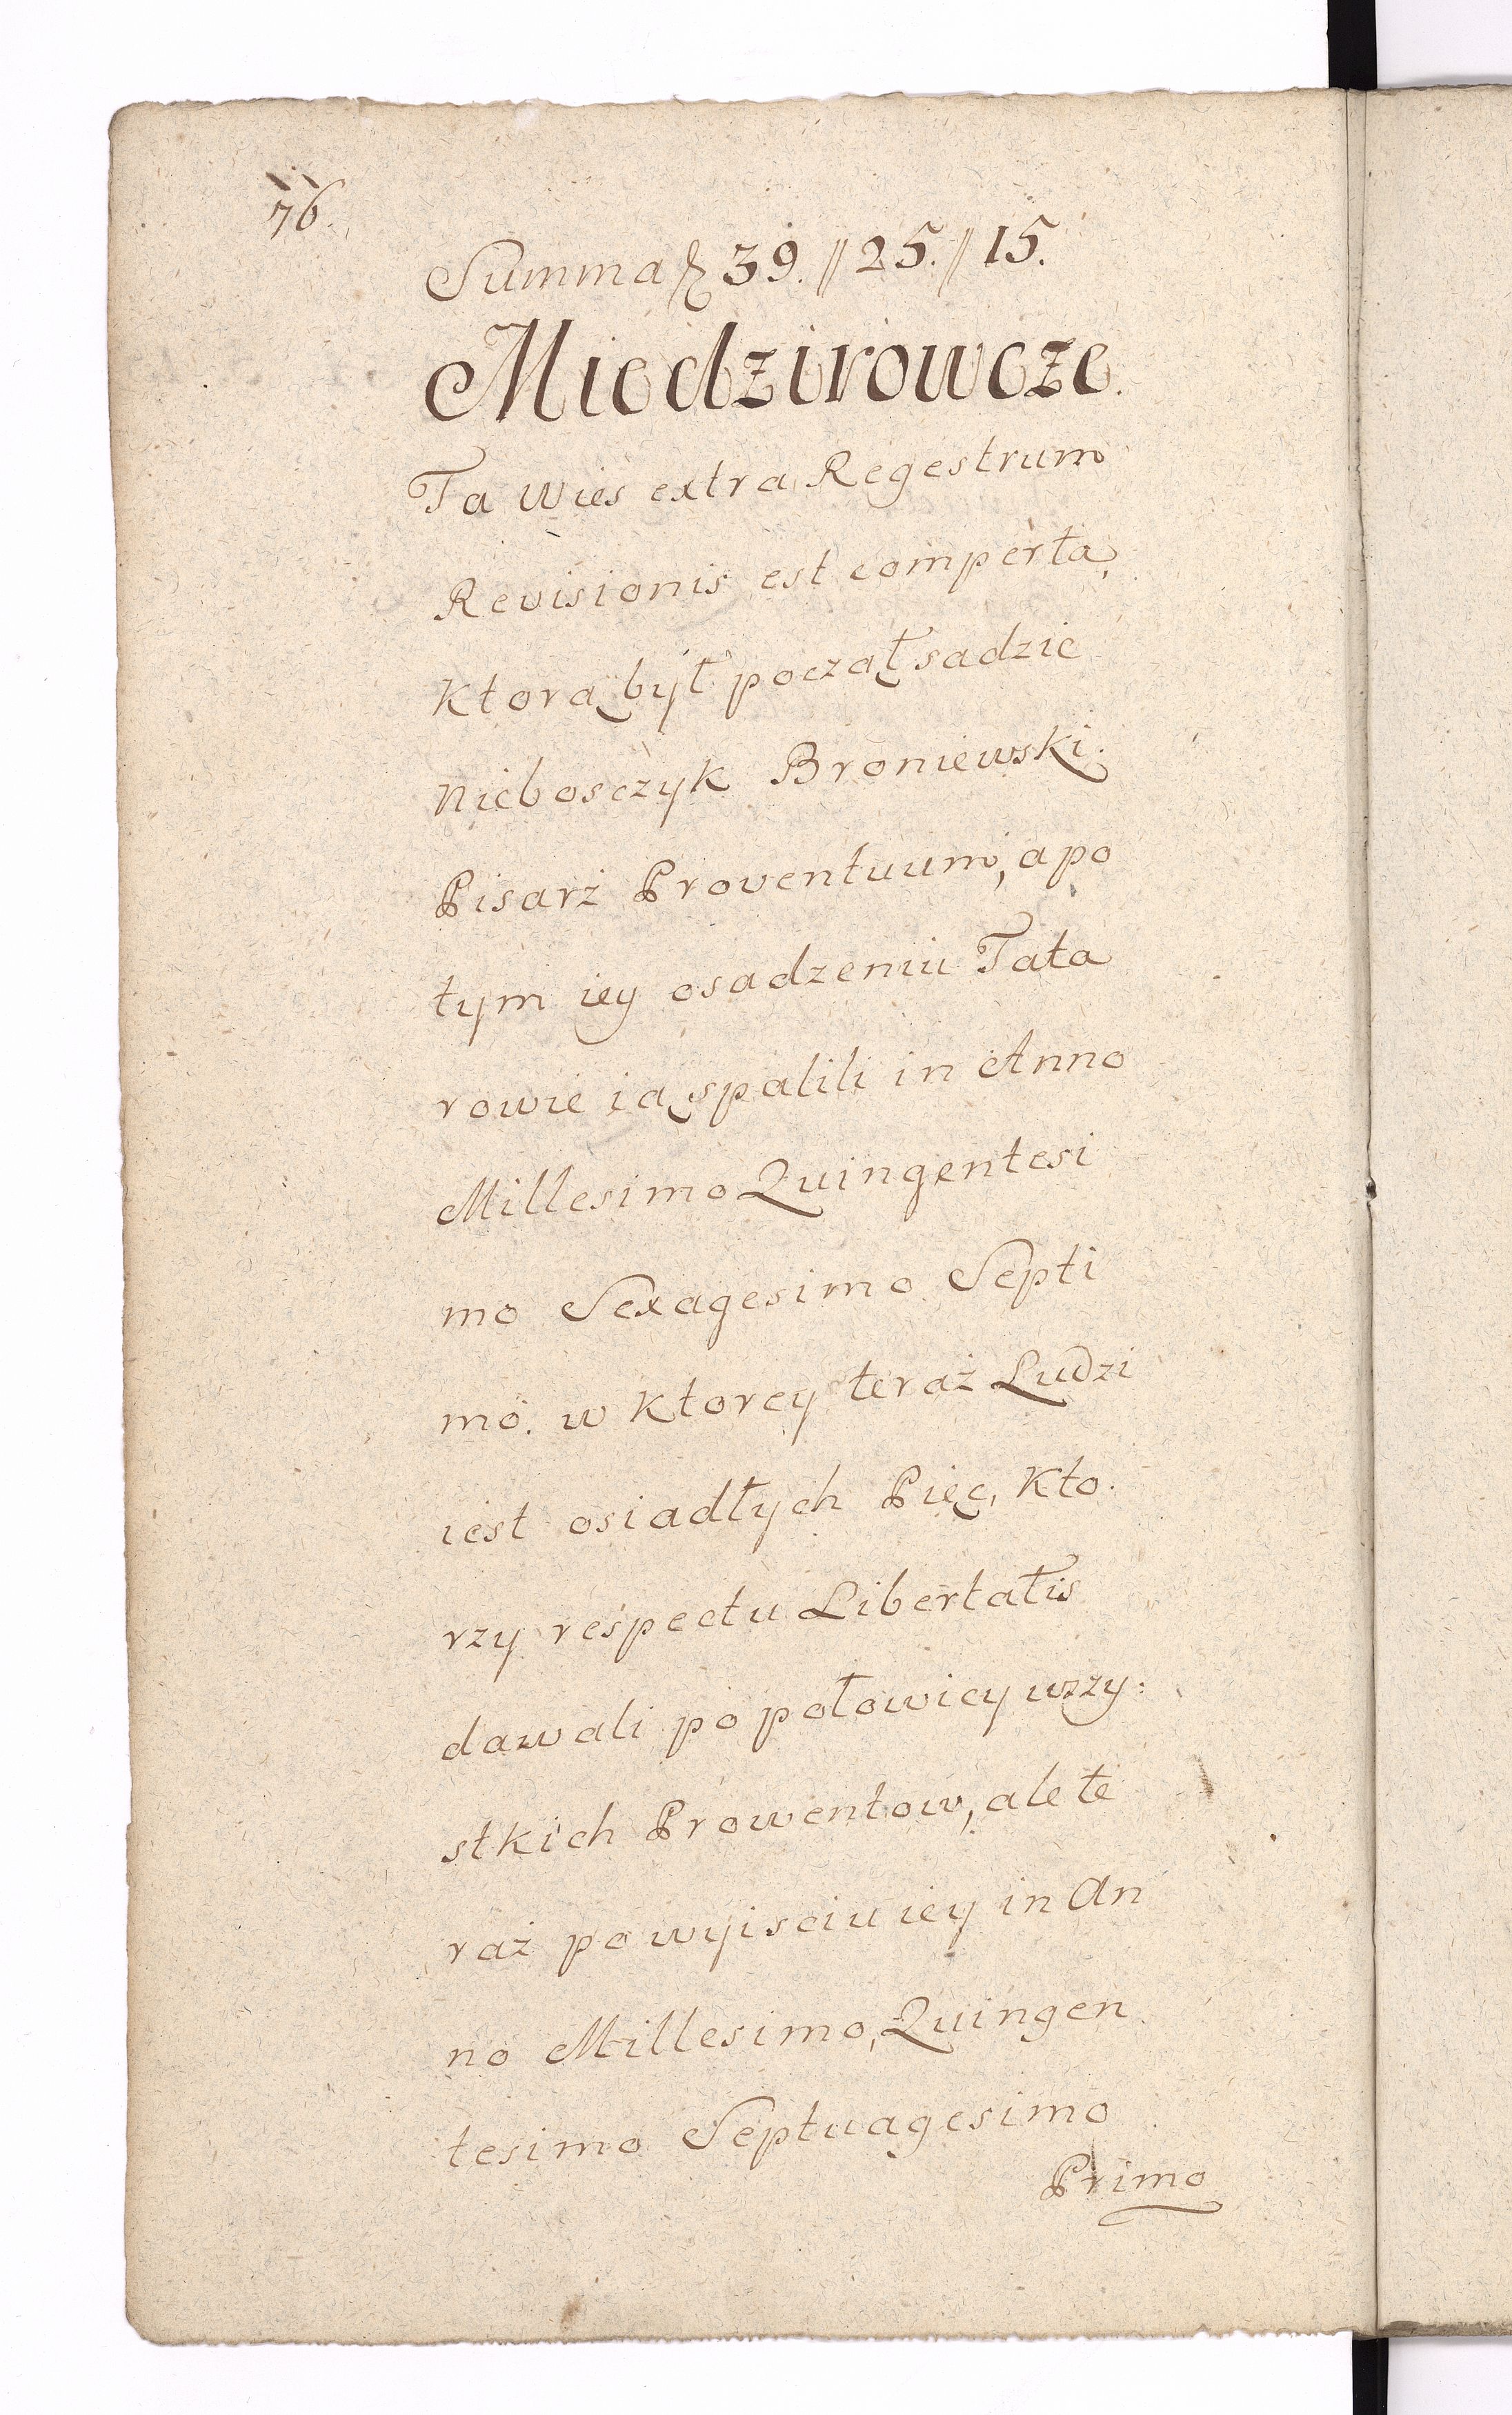 76.
Summa ƒ 39. // 25. // 15.
Miedzirowcze.
Ta wies extra Regestrum
Revisionis est comperta,
Ktorą był począł sadzic
Nieboszczyk Broniewski.
Pisarż Proventuum, a po
tym iey osadzeniu Tata
rowie ią spalili in Anno
Millesimo Quingentesi
mo Sexagesimo Septi
mo. w Ktorey teraż Ludzi
iest osiadłych Pięc, Kto.
rzy respectu Libertatis
dawali po połowicy wszy:
stkich Prowentow, ale te
raż po wyisciu iey in An
no Millesimo, Quingen
tesimo Septuagesimo
Primo